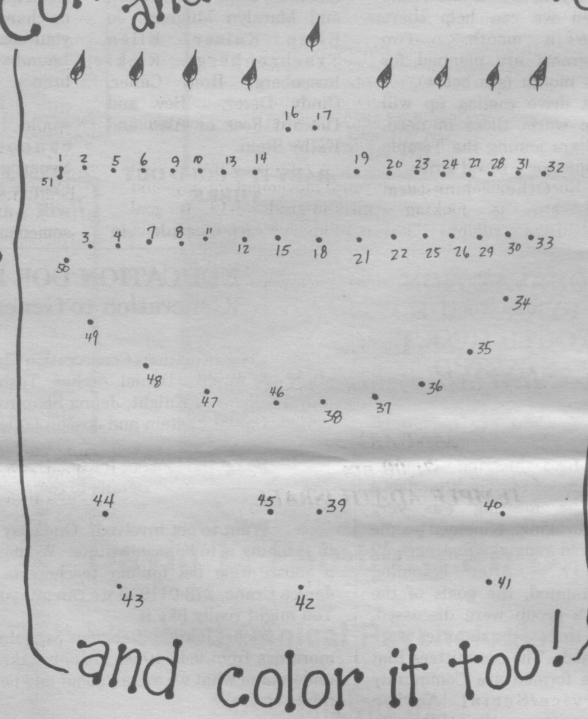 and
16 17
1 2 5 6 9 10 13 14 19 20 23 24 27 28 31 32
51
3 4 7 8 11 12 15 18 21 22 25 26 29 30 33
50
34
49
35
48 47 46 38 37 36
44 45 39 40
43 42 41
and color it too!